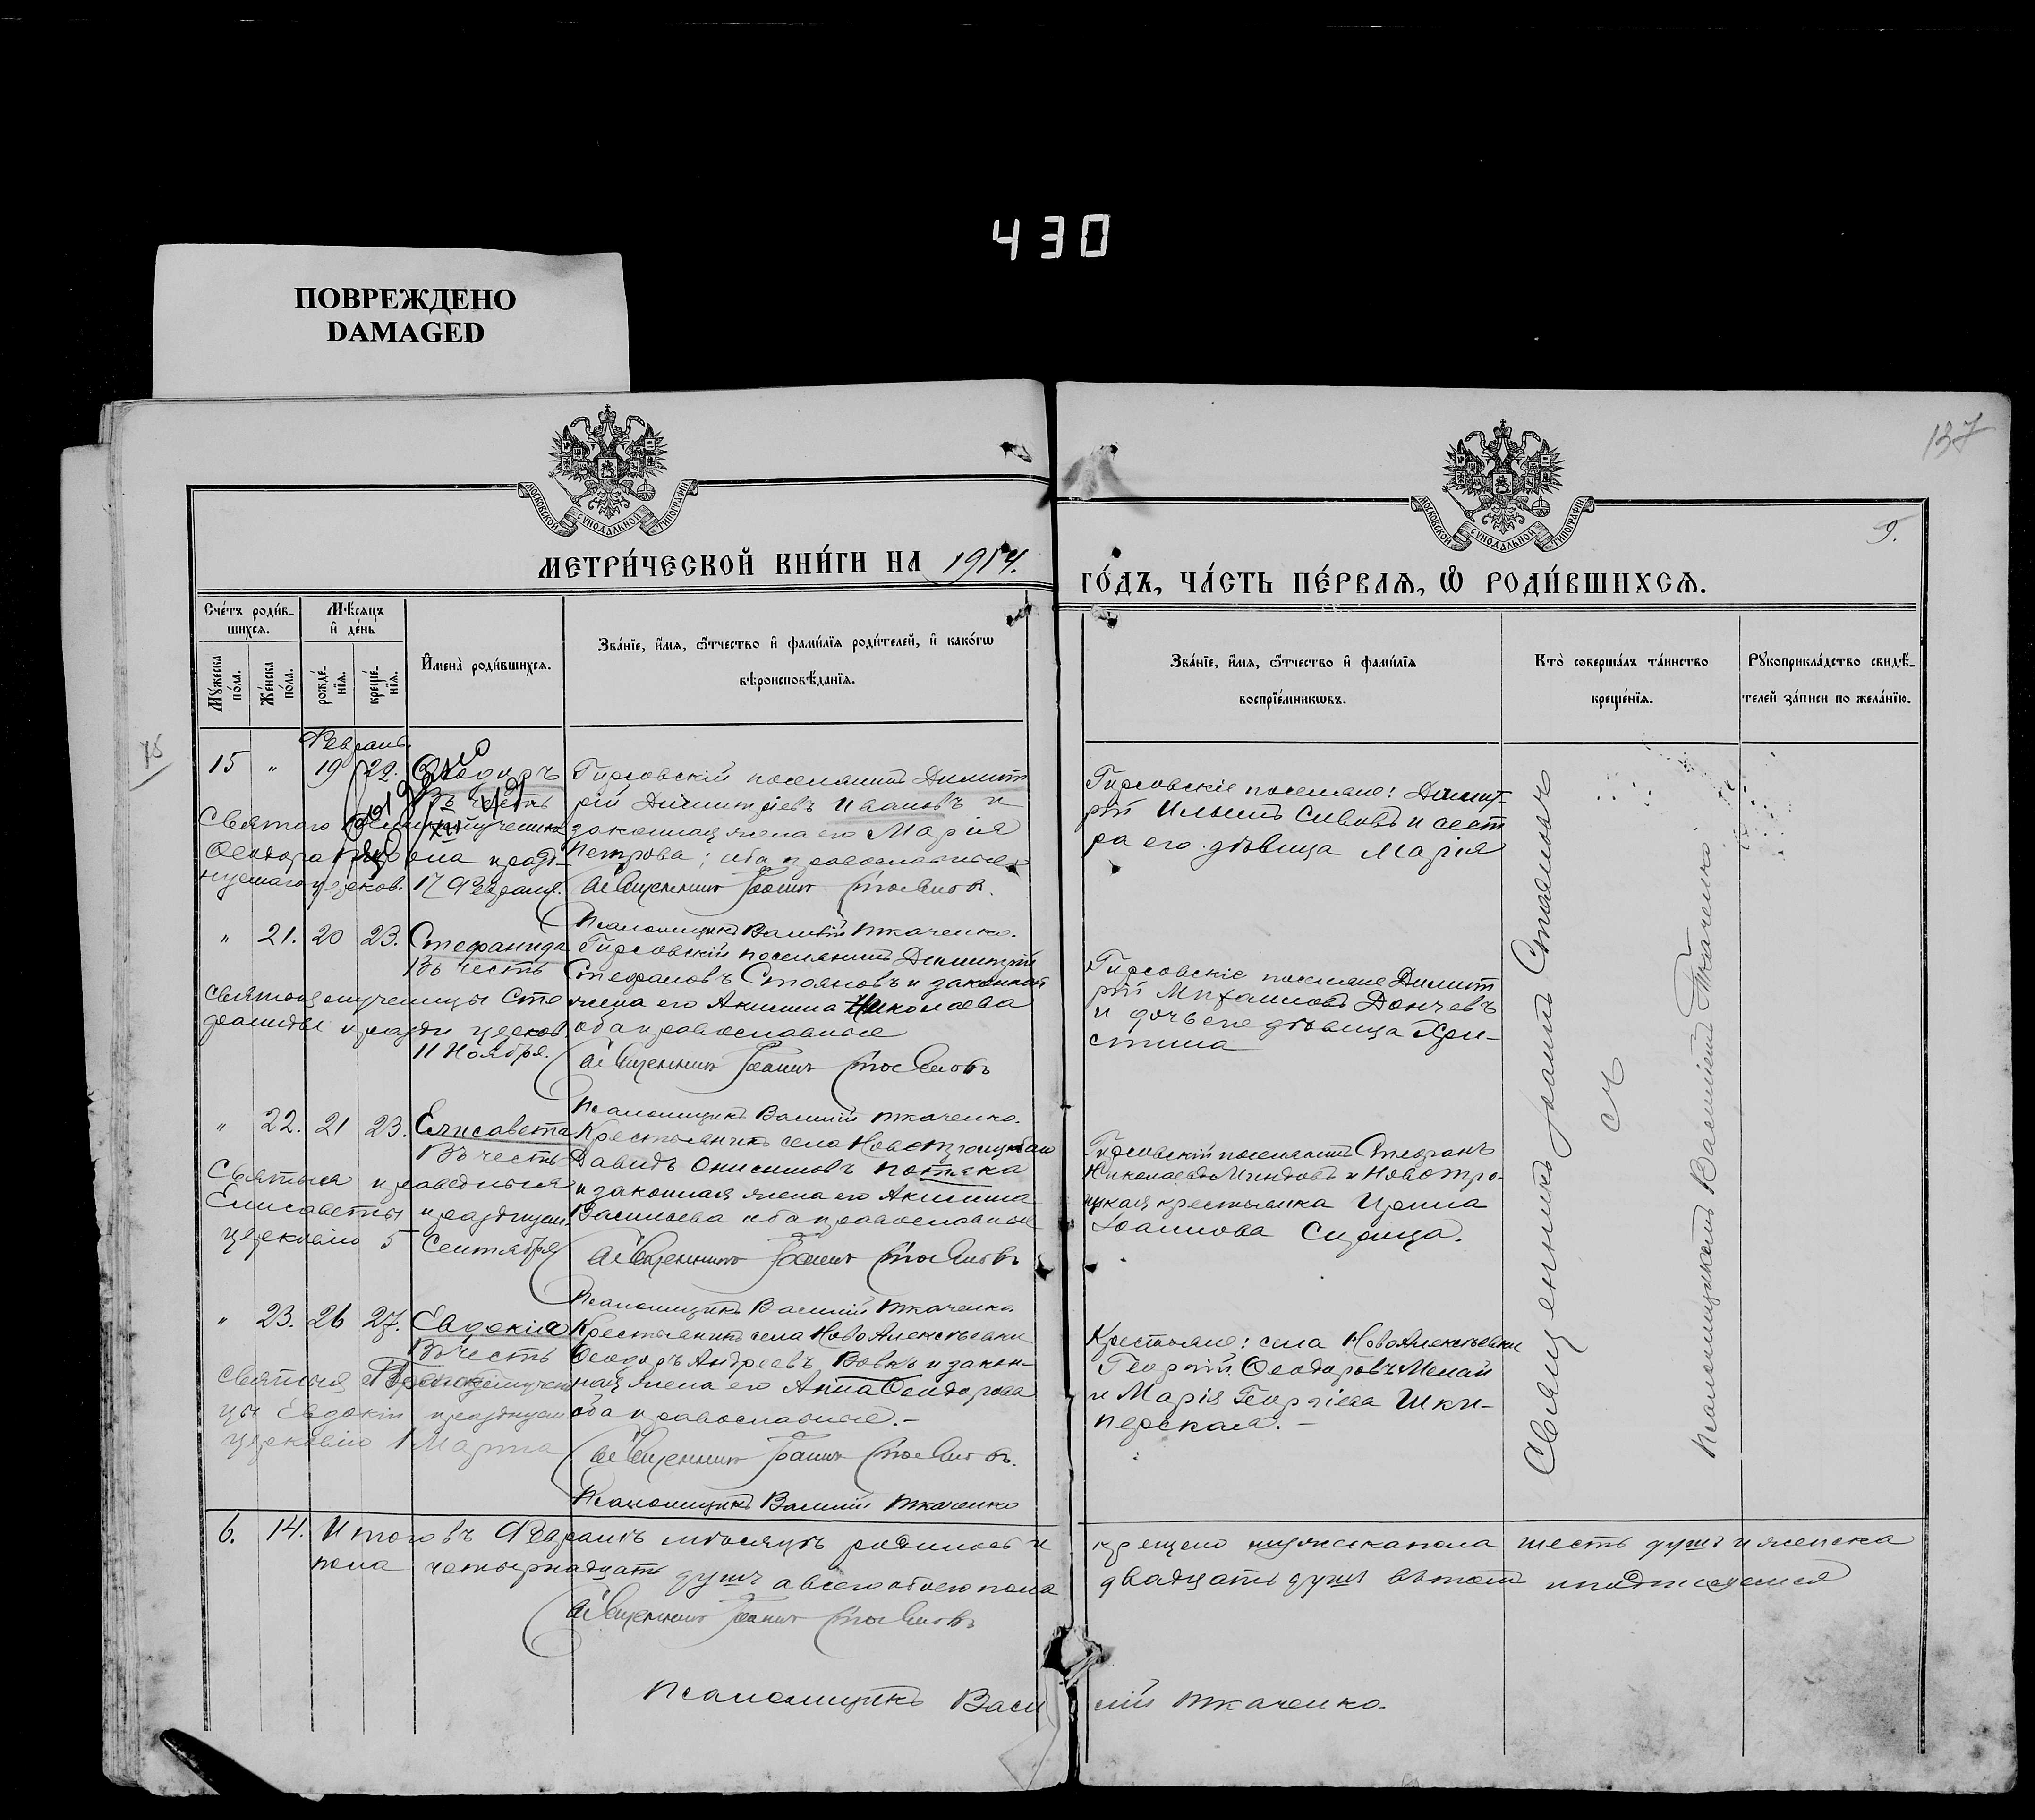 430
ПОВРЕЖДЕНО
DAMAGED
137
9.
МОСКОВСКОЙ СѴНОДАЛЬНОЙ ТИПОГРАФІИ
МОСКОВСКОЙ СѴНОДАЛЬНОЙ ТИПОГРАФІИ
МЕТРИ́ЧЕСКОЙ КНИ́ГИ НА 1914.
ГО́ДЪ, ЧА́СТЬ ПЕ́РВАѦ, Ѡ РОДИ́ВШИХСѦ.
Сче́тъ роди́в-
шихсѧ.
Мꙋ́жеска по́ла.
Же́нска по́ла.
Мѣ́сѧцъ
и҆ де́нь
рожде́-
нїѧ.
креще́-
нїѧ.
И҆мена̀ роди́вшихсѧ.
Зва́нїе, и҆́мѧ, ѻ҆́тчество и҆ фами́лїѧ роди́телей, и҆ како́гѡ
вѣроисповѣ́данїѧ.
Зва́нїе, и҆́мѧ, ѻ҆́тчество и҆ фами́лїѧ
воспрїе́мникѡвъ.
Кто̀ соверша́лъ та́инство
креще́нїѧ.
Рꙋкоприкла́дство свидѣ́-
телей за́писи по жела́нїю.
15
Февраль.
15 " 19 22. Ѳеодоръ
Въ честь
Святого Великомученика
Ѳеодора Тирона празд-
нуемаго церков. 17 Февраля.
Гирсовскій поселянинъ Димит
рій Димитріевъ Ивановъ и
законная жена его Марія
Петрова; оба православные
Священникъ Іоаннъ Стояновъ.
Псаломщикъ Василій Ткаченко.
Гирсовскіе поселяне: Димит-
рій Ильинъ Сивовъ и сест
ра его дѣвица Марія
" 21. 20 23. Стефанида
Въ честь
святыя мученицы Сте
фаниды праздн церков.
11 Ноября.
Гирсовскій поселянинъ Димитрій
Стефановъ Стояновъ и законная
жена его Акилина Николаева
оба православные
Священникъ Іоаннъ Стояновъ
Псаломщикъ Василій Ткаченко.
Гирсовскіе поселяне Димит
рій Михаиловъ Дончевъ
и дочь его дѣвица Хри-
стина
" 22. 21 23. Елисавета
Въ честь
Святыя праведныя
Елисаветы празднуем.
церковію 5 Сентября
Крестьянинъ села Новотроицкаго
Давидъ Онисимовъ Потяка
и законная жена его Акилина
Васильева оба православные
Священникъ Іоаннъ Стояновъ
Псаломщикъ Василій Ткаченко.
Гирсовскій поселянинъ Стефанъ
Николаевъ Миндовъ и Новотро-
ицкая крестьянка Ирина
Іоаннова Сирица.
" 23. 26 27. Евдокія
Въ честь
святыя Преподобномучени
цы Евдокіи празднуем
церковію 1 Марта
Крестьянинъ села Новоалексѣевки
Ѳеодоръ Андреевъ Вовкъ и закон-
ная жена его Анна Ѳеодорова
оба православные.-
Священникъ Іоаннъ Стояновъ.
Псаломщикъ Василій Ткаченко
Крестьяне: села Новоалексѣевки
Георгій Ѳеодоровъ Мелай
и Марія Георгіева Шки-
перская.-
Священникъ Іоаннъ Стояновъ
съ
Псаломщикомъ Василіемъ Ткаченко.
6. 14. Итого въ Февралѣ мѣсяцѣ родилось и крещено мужеска пола шесть душъ и женска
пола четырнадцать душъ а всего обоего пола двадцать душъ въ томъ и подписуемся
Священникъ Іоаннъ Стояновъ
Псаломщикъ Василій Ткаченко.